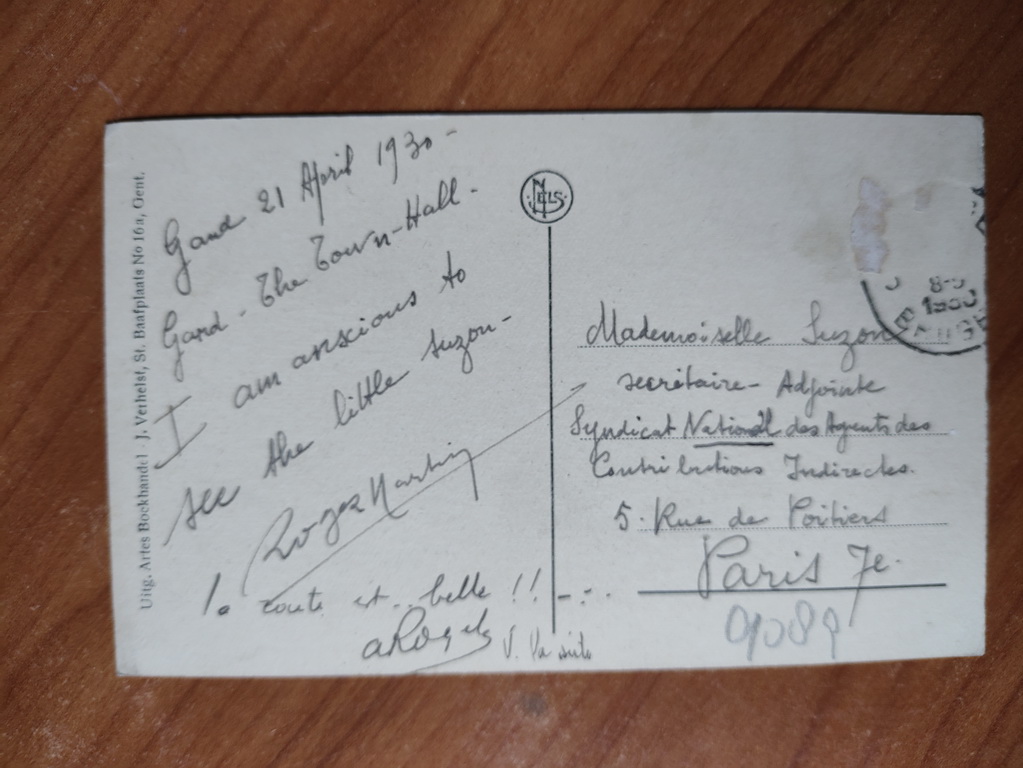 Uitg. Artes Boekhandel - J. Verhelst, St. Baafplaats No 16a, Gent.
Gand 21 April 1930 -
Gand - The Town-Hall -
I am anxious to
see the little Suzon -
Roger Martin
route est belle !!
NELS
Mademoiselle Suzon
Secrétaire - Adjointe
Syndicat National des Agents des
Contributions Indirectes.
5. Rue de Poitiers
Paris 7e.
8-9
1930